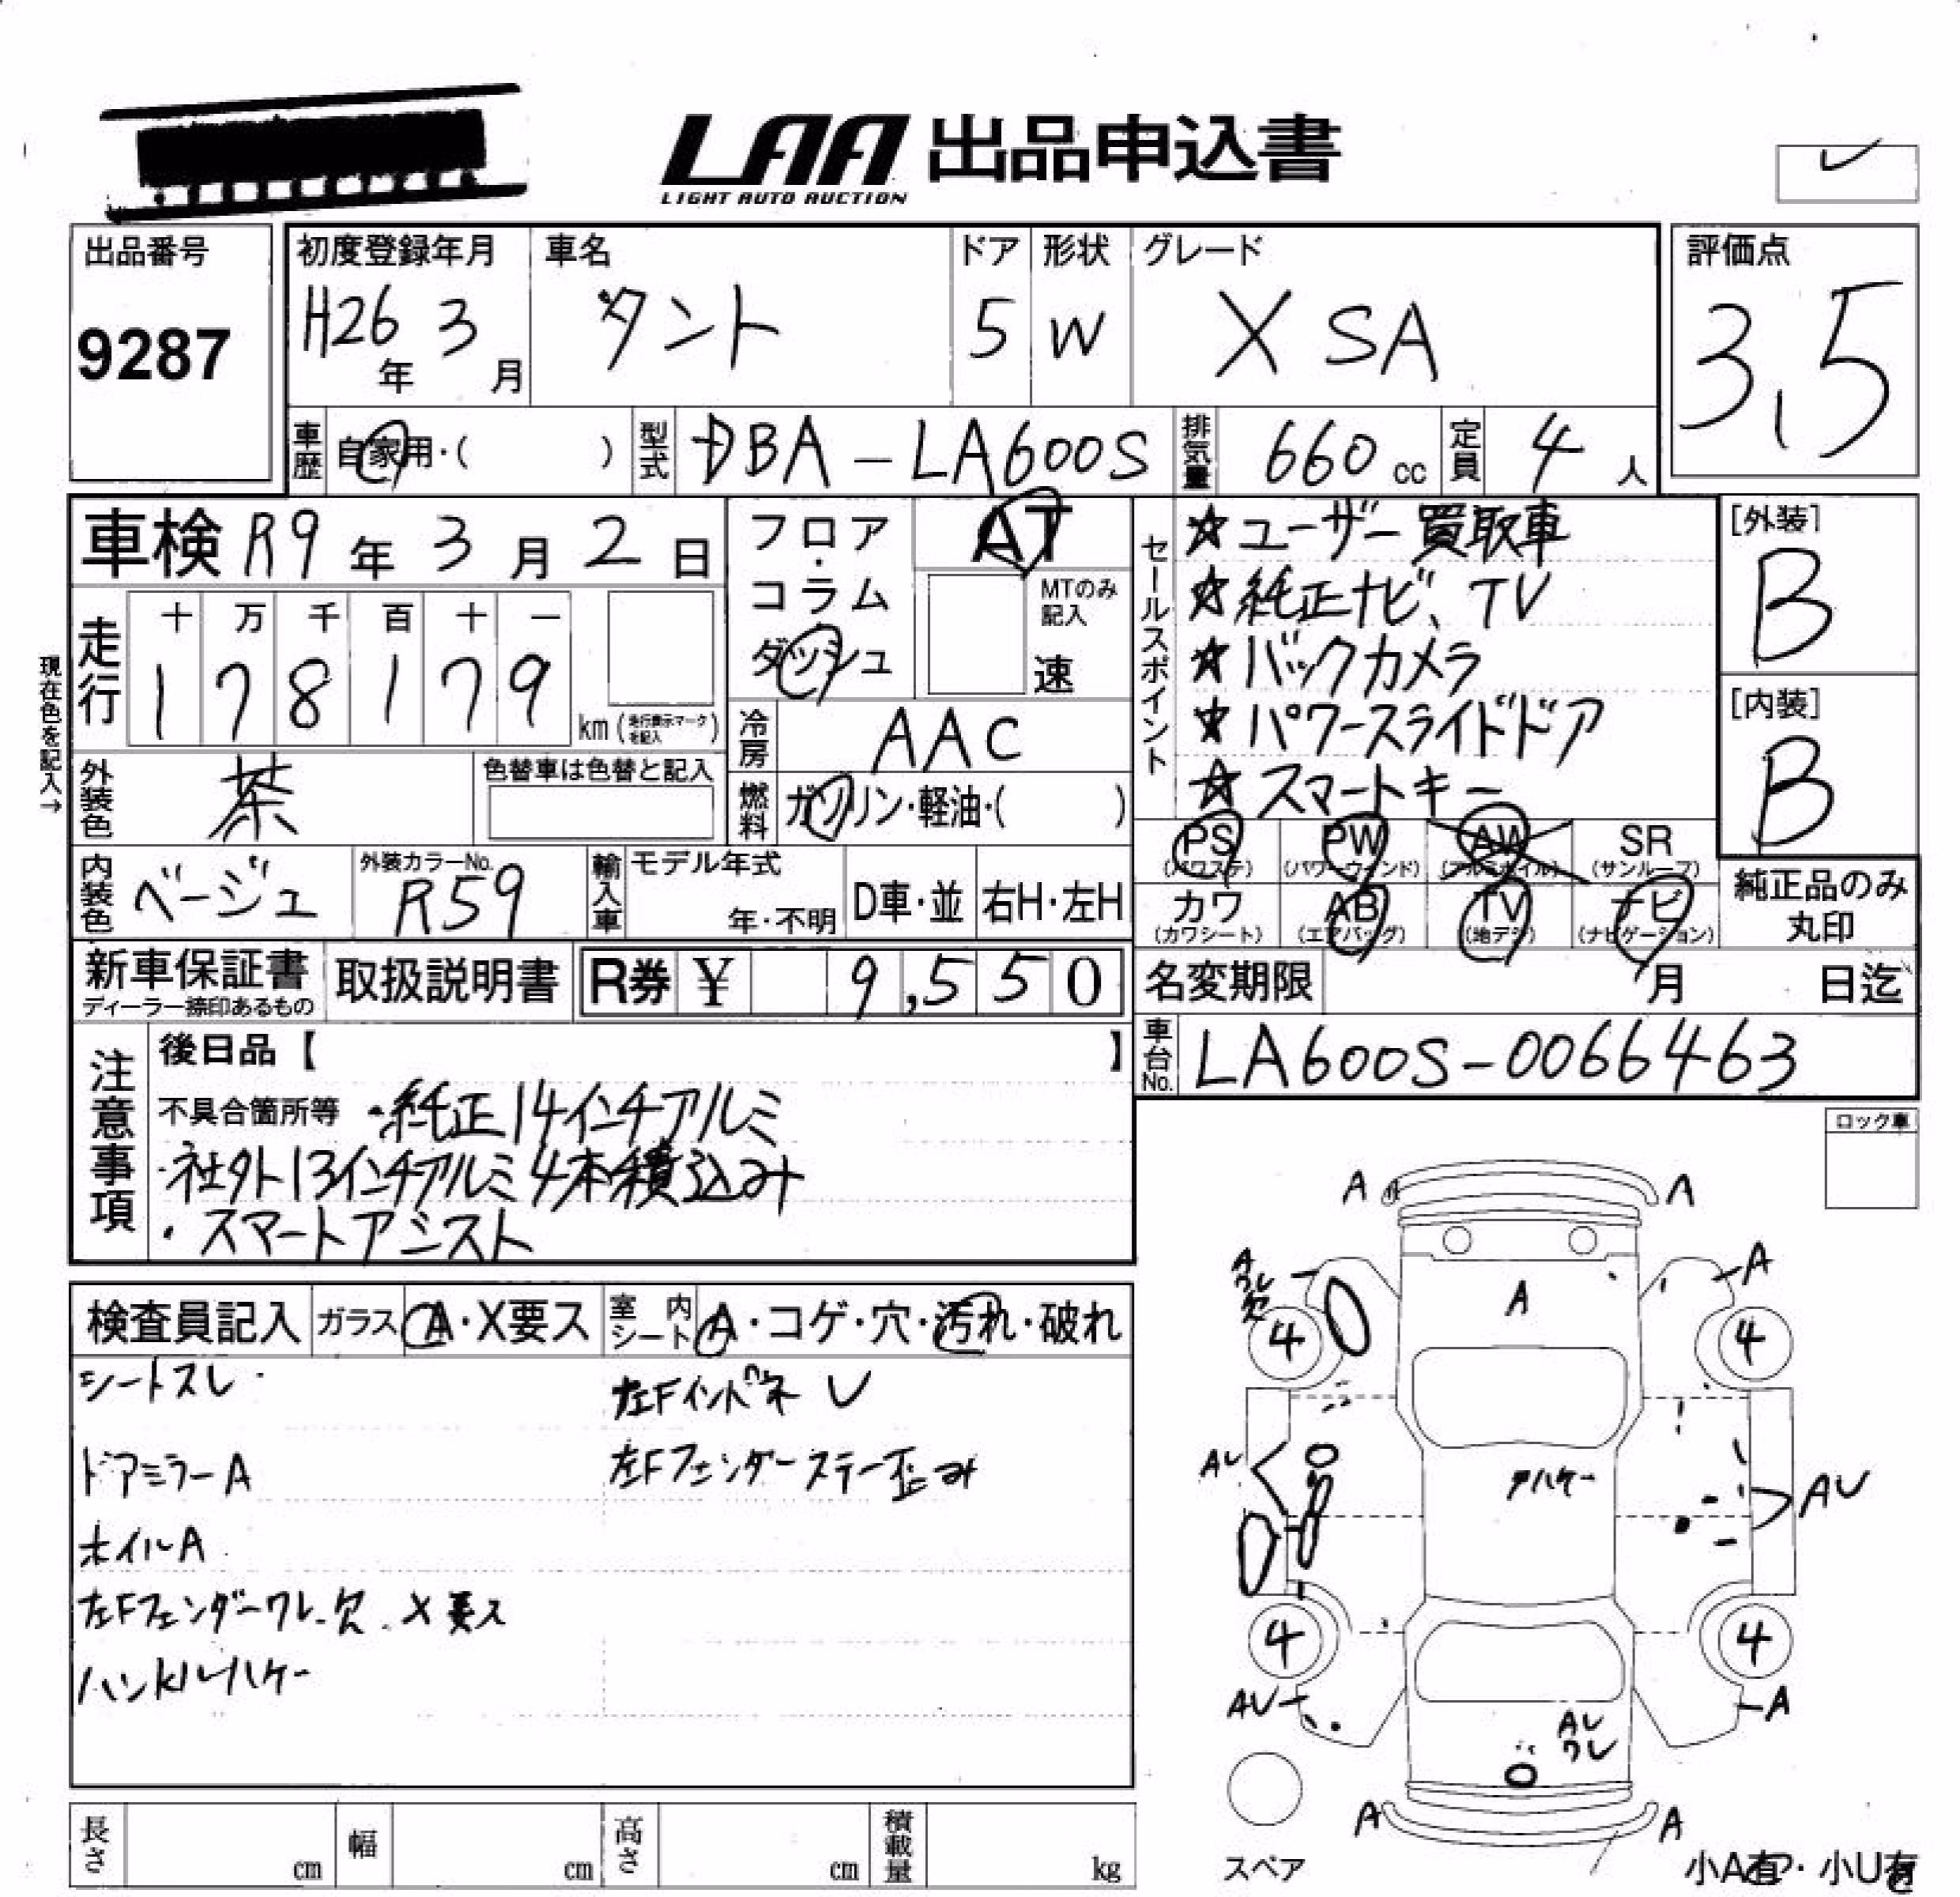 LAA 出品申込書
LIGHT AUTO AUCTION
出品番号
9287
初度登録年月
H26年 3月
車名
タント
ドア
5
形状
W
グレード
X SA
評価点
3.5
車歴 自家用・( )
型式 DBA-LA600S
排気量 660 cc
定員 4人
車検 R9年 3月 2日
現在色を記入→
走行
十 万 千 百 十 一
1 7 8 1 7 9 km (走行表示マークを記入)
フロア・コラム
ダッシュ
AT
MTのみ記入
速
冷房 AAC
燃料 ガソリン・軽油・( )
外装色 茶
色替車は色替と記入
内装色 ベージュ
外装カラーNo. R59
輸入車 モデル年式
年・不明
D車・並 右H・左H
セールスポイント
☆ユーザー買取車
☆純正ナビ、TV
☆バックカメラ
☆パワースライドドア
☆スマートキー
[外装]
B
[内装]
B
PS (パワステ) PW (パワーウィンド) AW (アルミホイル) SR (サンルーフ)
カワ (カワシート) AB (エアバッグ) TV (地デジ) ナビ (ナビゲーション)
純正品のみ
丸印
新車保証書
ディーラー捺印あるもの
取扱説明書
R券 ¥ 9,550
名変期限 月 日迄
車台No. LA600S-0066463
注意事項
後日品【 】
不具合箇所等 ・純正14インチアルミ
・社外13インチアルミ4本積込み
・スマートアシスト
ロック車
検査員記入 ガラス A・X要ス 室内シート A・コゲ・穴・汚れ・破れ
シートスレ
左Fインパネ U
ドアミラーA
左Fフェンダーステー歪み
ホイルA
左Fフェンダーワレ欠 X要ス
ハンドルハゲ
A A
A ワレ 欠
A
A
4 4
AU
AU
ハゲ
4 4
AU
A
AU ワレ
A A
スペア
小A有・小U有
長さ cm
幅 cm
高さ cm
積載量 kg